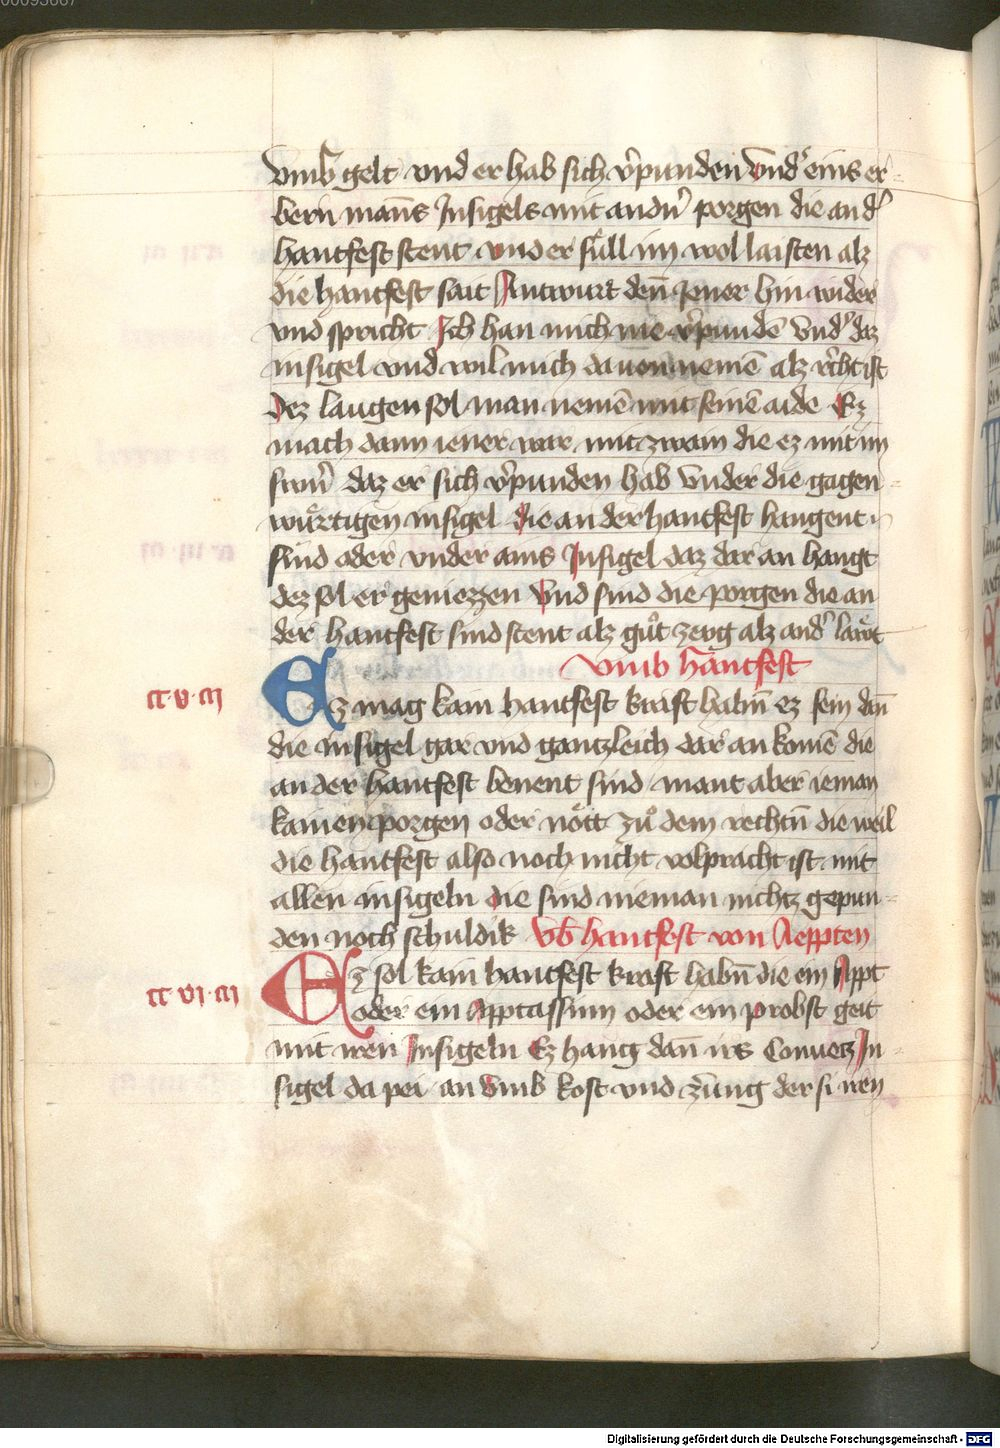 00093667
vmb gelt vnd er hab sich v̾punden vnd᾽ eins er-
bern mañs Insigels mit andn̄ porgen die an d᾽
hantfest stent vnd er süll im wol laisten alz
die hantfest sait Antwurt deñ Jener hin wider
vnd spricht Ich han mich nie v̾pundē vnd᾽ daz
insigel vnd wil mich da uon nemē alz r̄cht ist
Dez laugen sol man nemē mit seinē aide Ez
mach dann iener war mit zwain die ez mit im
swn̄ daz er sich v̾punden hab vnder die gagen-
wuͤrtigen insigel die an der hantfest hangent
sind oder vnder ains Insigel daz dar an hangt
dez sol er geniezzen vnd sind die porgen die an
der hantfest sind stent alz guͦt zeug alz and᾽ laͤut
vmb hantfest
cc·v·m
Ez mag kain hantfest kraft habn̄ ez sein dañ
die insigel gar vnd gantzleich dar an komē die
an der hantfest benent sind mant aber ieman
kainen porgen oder noͤtt zuͦ dem rechtn̄ die weil
die hantfest also noch nicht volpracht ist mit
allen insigeln die sind nieman nichtz gepun-
den noch schuldik Vb hantfest von Aeppten
cc·vi·m
Ez sol kain hantfest kraft habn̄ die ein Appt
oder ein Apptassinn oder ein probst geit
mit iren Insigeln Ez hang dañ irs Conuetz In-
sigel da pei an vmb kost vnd zerung der si iren
Digitalisierung gefördert durch die Deutsche Forschungsgemeinschaft - DFG